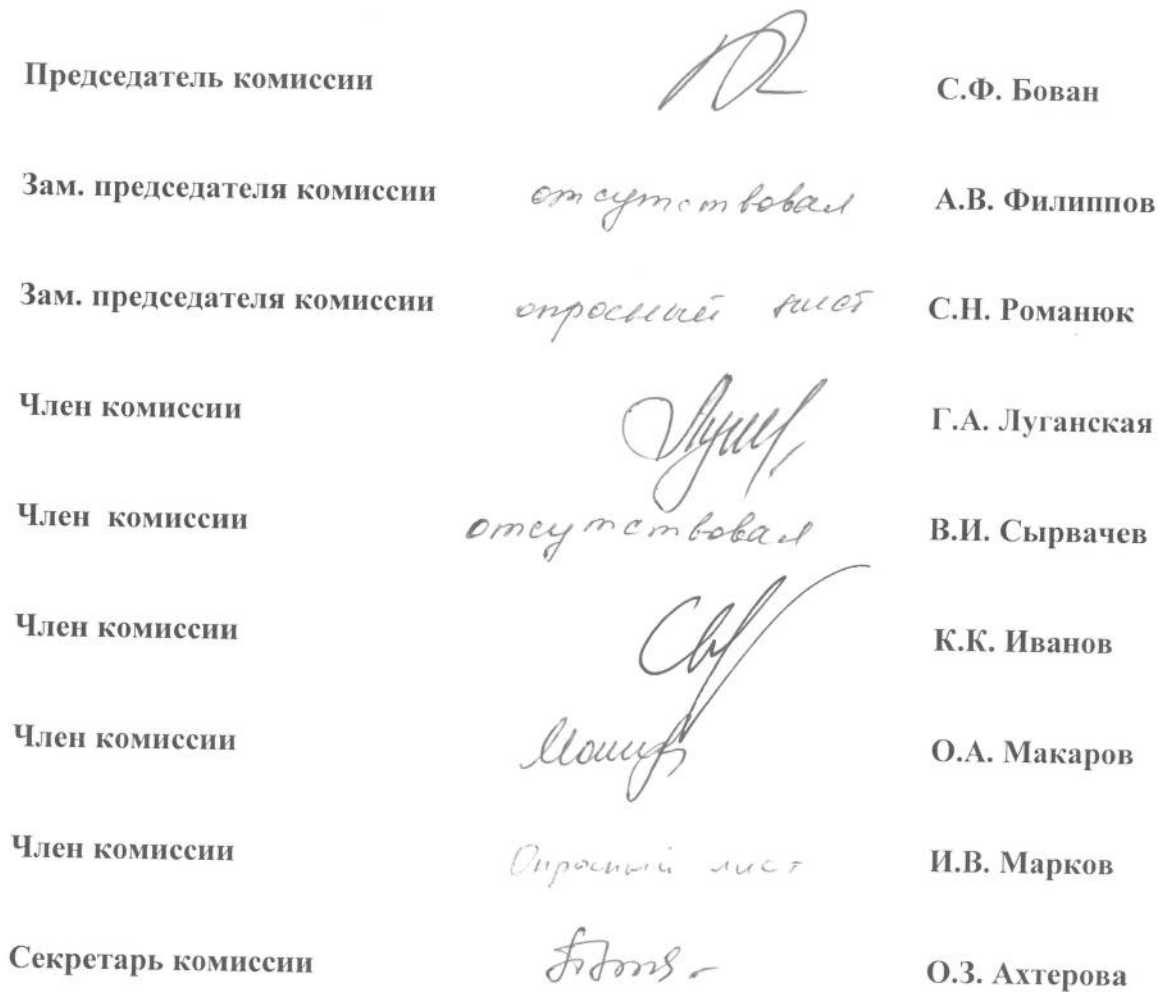 Председатель комиссии С.Ф. Бован
Зам. председателя комиссии отсутствовал А.В. Филиппов
Зам. председателя комиссии опросный лист С.Н. Романюк
Член комиссии Г.А. Луганская
Член комиссии отсутствовал В.И. Сырвачев
Член комиссии К.К. Иванов
Член комиссии О.А. Макаров
Член комиссии Опросный лист И.В. Марков
Секретарь комиссии О.З. Ахтерова